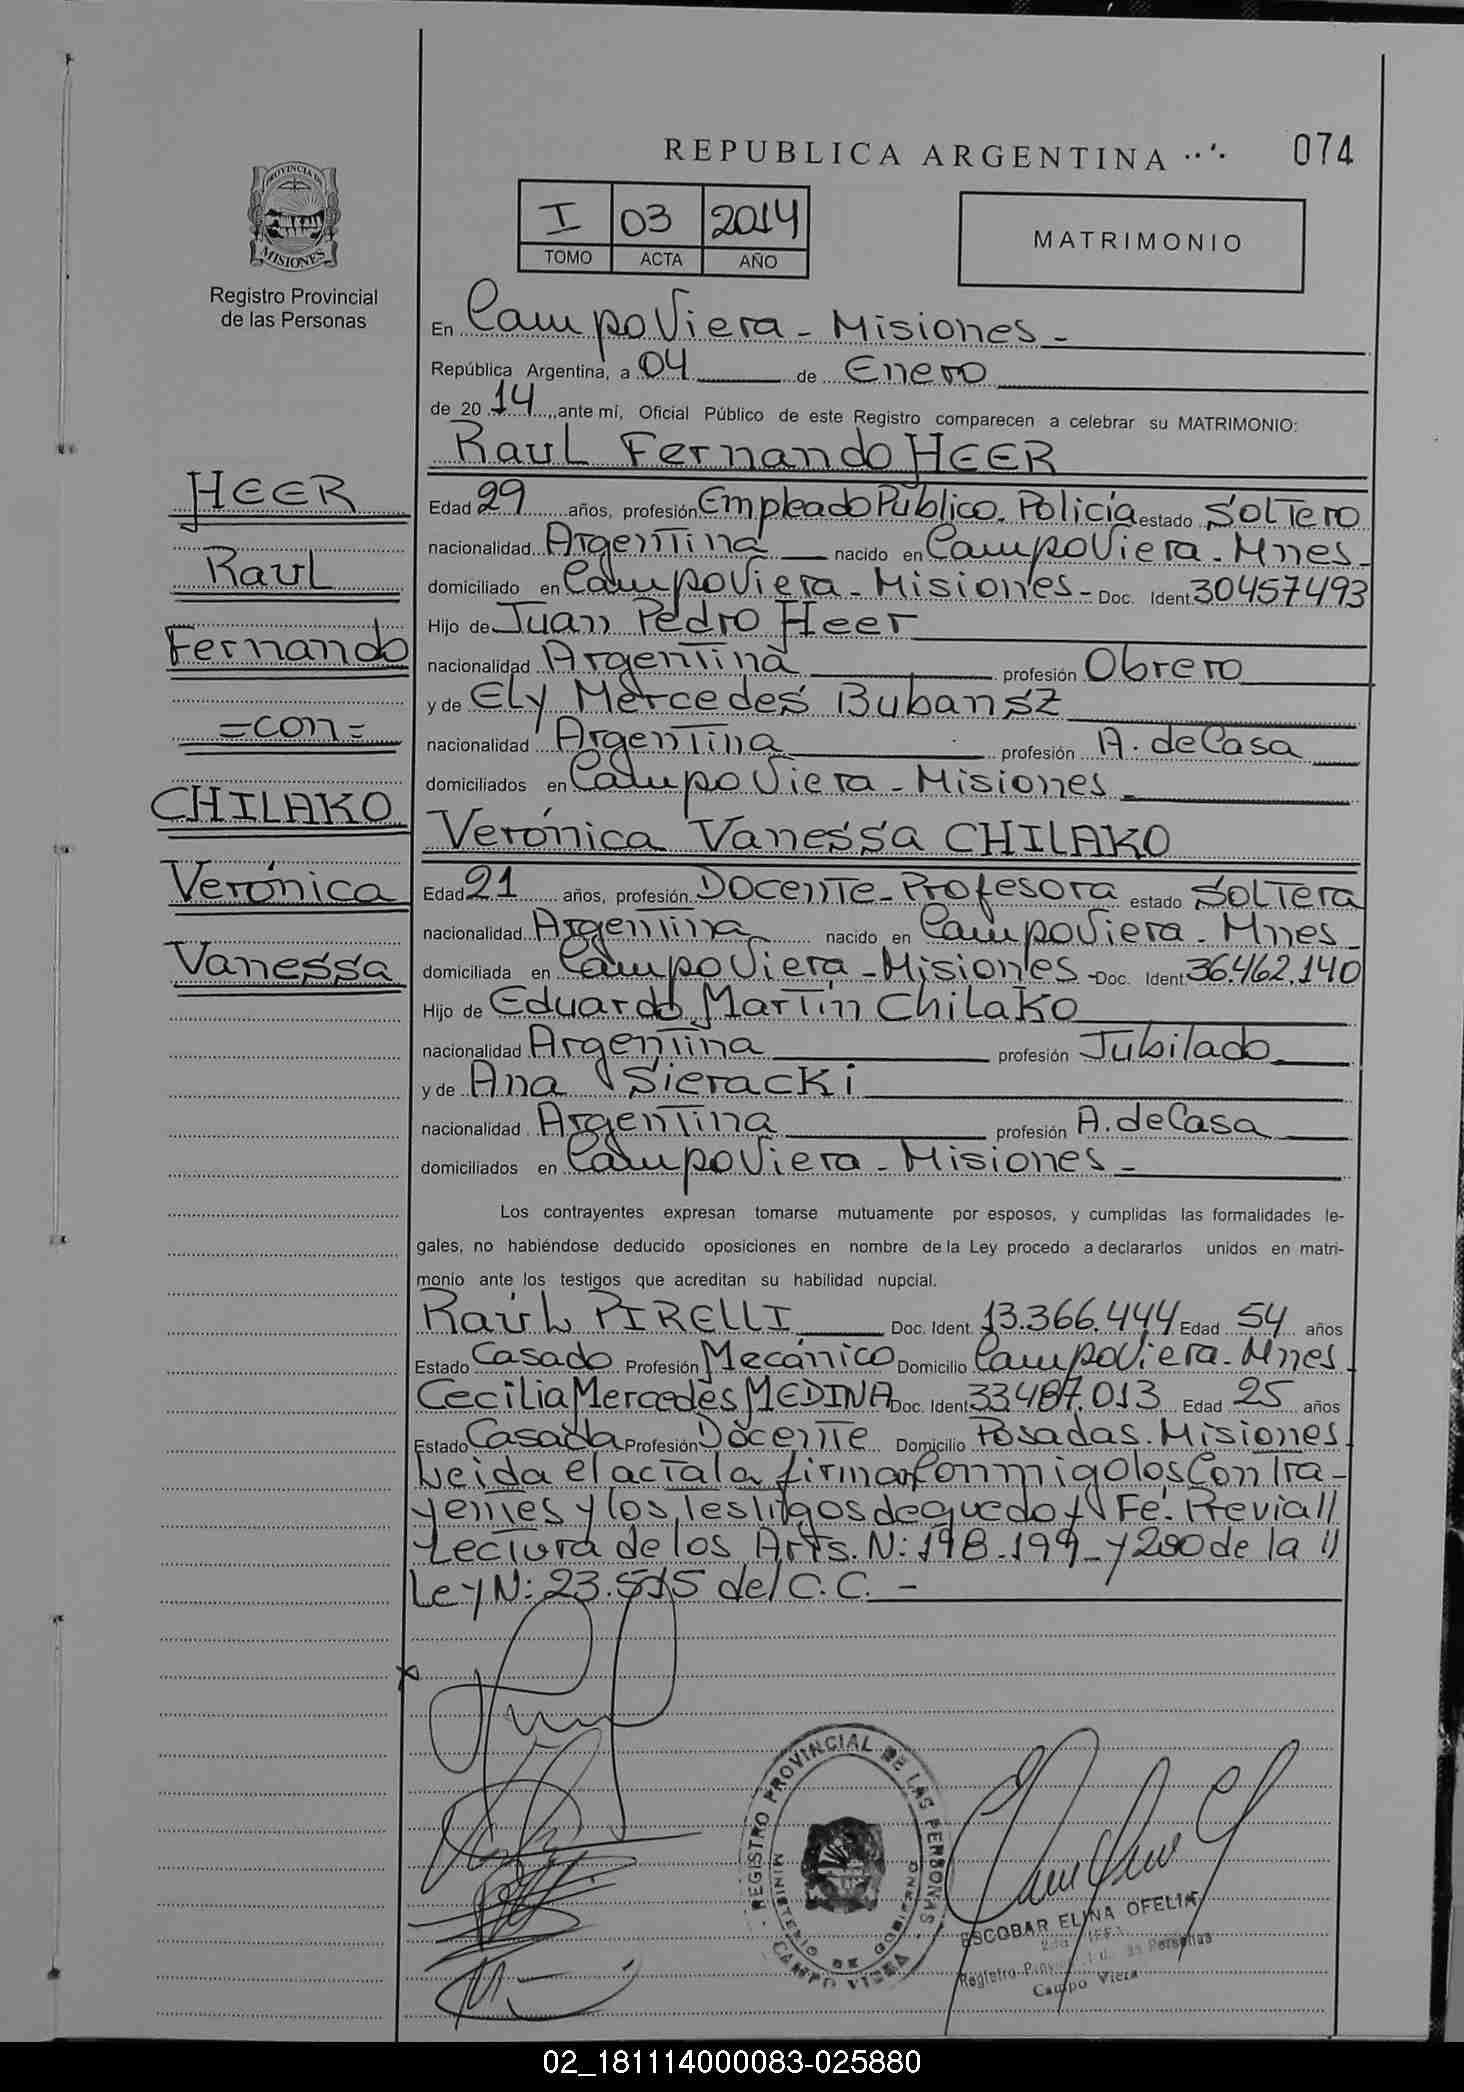 REPUBLICA ARGENTINA
074
PROVINCIA DE
MISIONES
Registro Provincial
de las Personas
I 03 2014
TOMO ACTA AÑO
MATRIMONIO
En CampoViera - Misiones -
República Argentina, a 04 de Enero
de 20 14, ante mí, Oficial Público de este Registro comparecen a celebrar su MATRIMONIO:
Raul Fernando HEER
Edad 29 años, profesión Empleado Público. Policía estado Soltero
nacionalidad Argentina nacido en CampoViera - Mnes -
domiciliado en CampoViera - Misiones - Doc. Ident. 30457493
Hijo de Juan Pedro Heer
nacionalidad Argentina profesión Obrero
y de Ely Mercedes Bubansz
nacionalidad Argentina profesión A. de Casa
domiciliados en Campo Viera - Misiones -
Verónica Vanessa CHILAKO
Edad 21 años, profesión Docente - Profesora estado Soltera
nacionalidad Argentina nacido en CampoViera - Mnes -
domiciliada en Campo Viera - Misiones - Doc. Ident. 36.462.140
Hijo de Eduardo Martín Chilako
nacionalidad Argentina profesión Jubilado
y de Ana Sieracki
nacionalidad Argentina profesión A. de Casa
domiciliados en CampoViera - Misiones -
Los contrayentes expresan tomarse mutuamente por esposos, y cumplidas las formalidades le-
gales, no habiéndose deducido oposiciones en nombre de la Ley procedo a declararlos unidos en matri-
monio ante los testigos que acreditan su habilidad nupcial.
Raúl PIRELLI Doc. Ident. 13.366.444 Edad 54 años
Estado Casado Profesión Mecánico Domicilio CampoViera - Mnes
Cecilia Mercedes MEDINA Doc. Ident. 33.487.013 Edad 25 años
Estado Casada Profesión Docente Domicilio Posadas. Misiones
Leida el acta la firman conmigo los Contra-
yentes y los testigos de que doy Fé. Previa //
Lectura de los Arts. N: 198 - 199 - y 200 de la //
Ley N: 23.515 del C.C. -
HEER
Raul
Fernando
=con=
CHILAKO
Verónica
Vanessa
REGISTRO PROVINCIAL DE LAS PERSONAS
MINISTERIO DE GOBIERNO
CAMPO VIERA
ESCOBAR ELINA OFELIA
Personas
Campo Viera
02_181114000083-025880